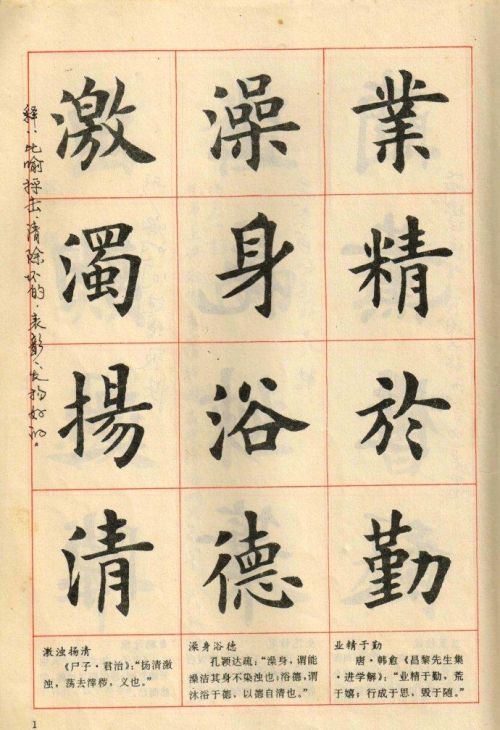 業精於勤
澡身浴德
激濁揚清
释：比喻抨击、清除坏的，表彰、发扬好的。
激浊扬清
《尸子·君治》：“扬清激
浊，荡去滓秽，义也。”
澡身浴德
孔颖达疏：“澡身，谓能
澡洁其身不染浊也；浴德，谓
沐浴于德，以德自清也。”
业精于勤
唐·韩愈《昌黎先生集
·进学解》：“业精于勤，荒
于嬉；行成于思，毁于随。”
1